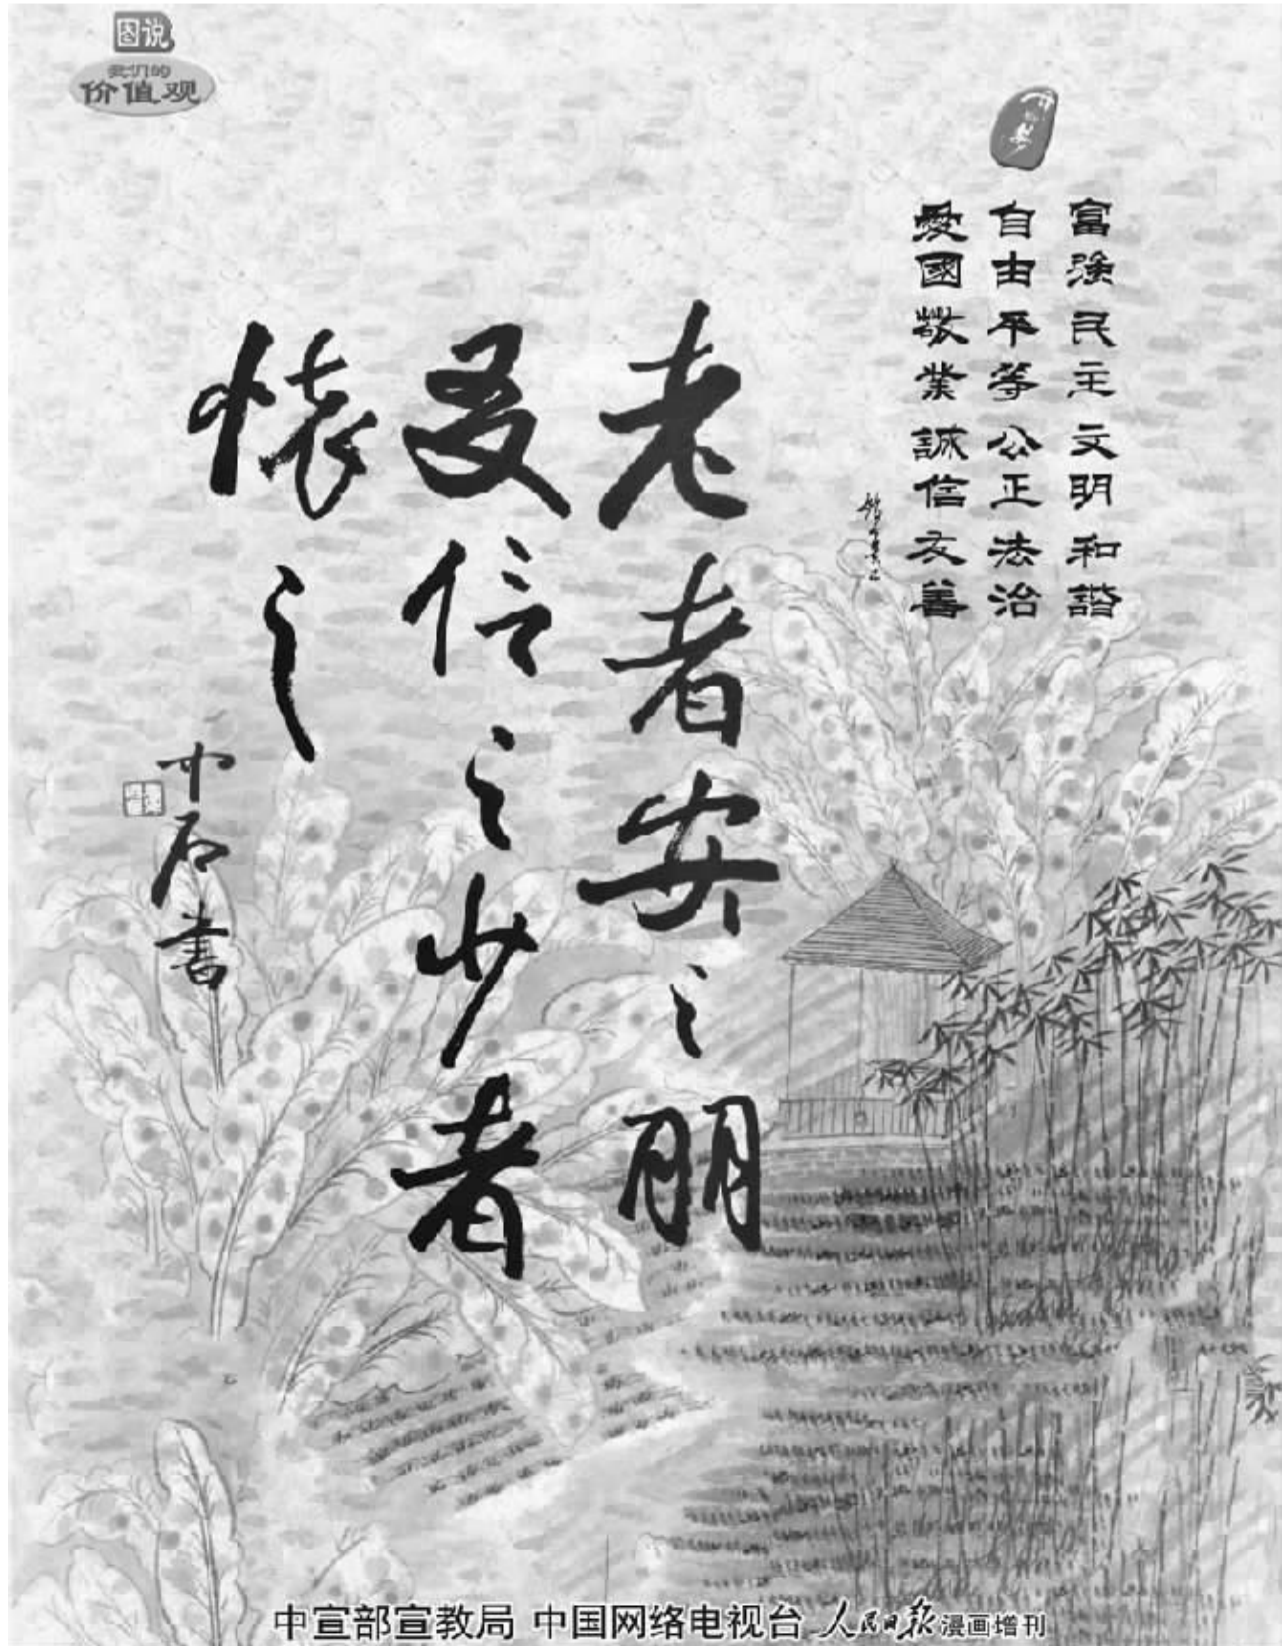 图说
我们的
价值观
中国梦
富强民主文明和谐
自由平等公正法治
愛國敬業誠信友善
老者安之朋
友信之少者
懷之
中石書
中宣部宣教局 中国网络电视台 人民日报 漫画增刊